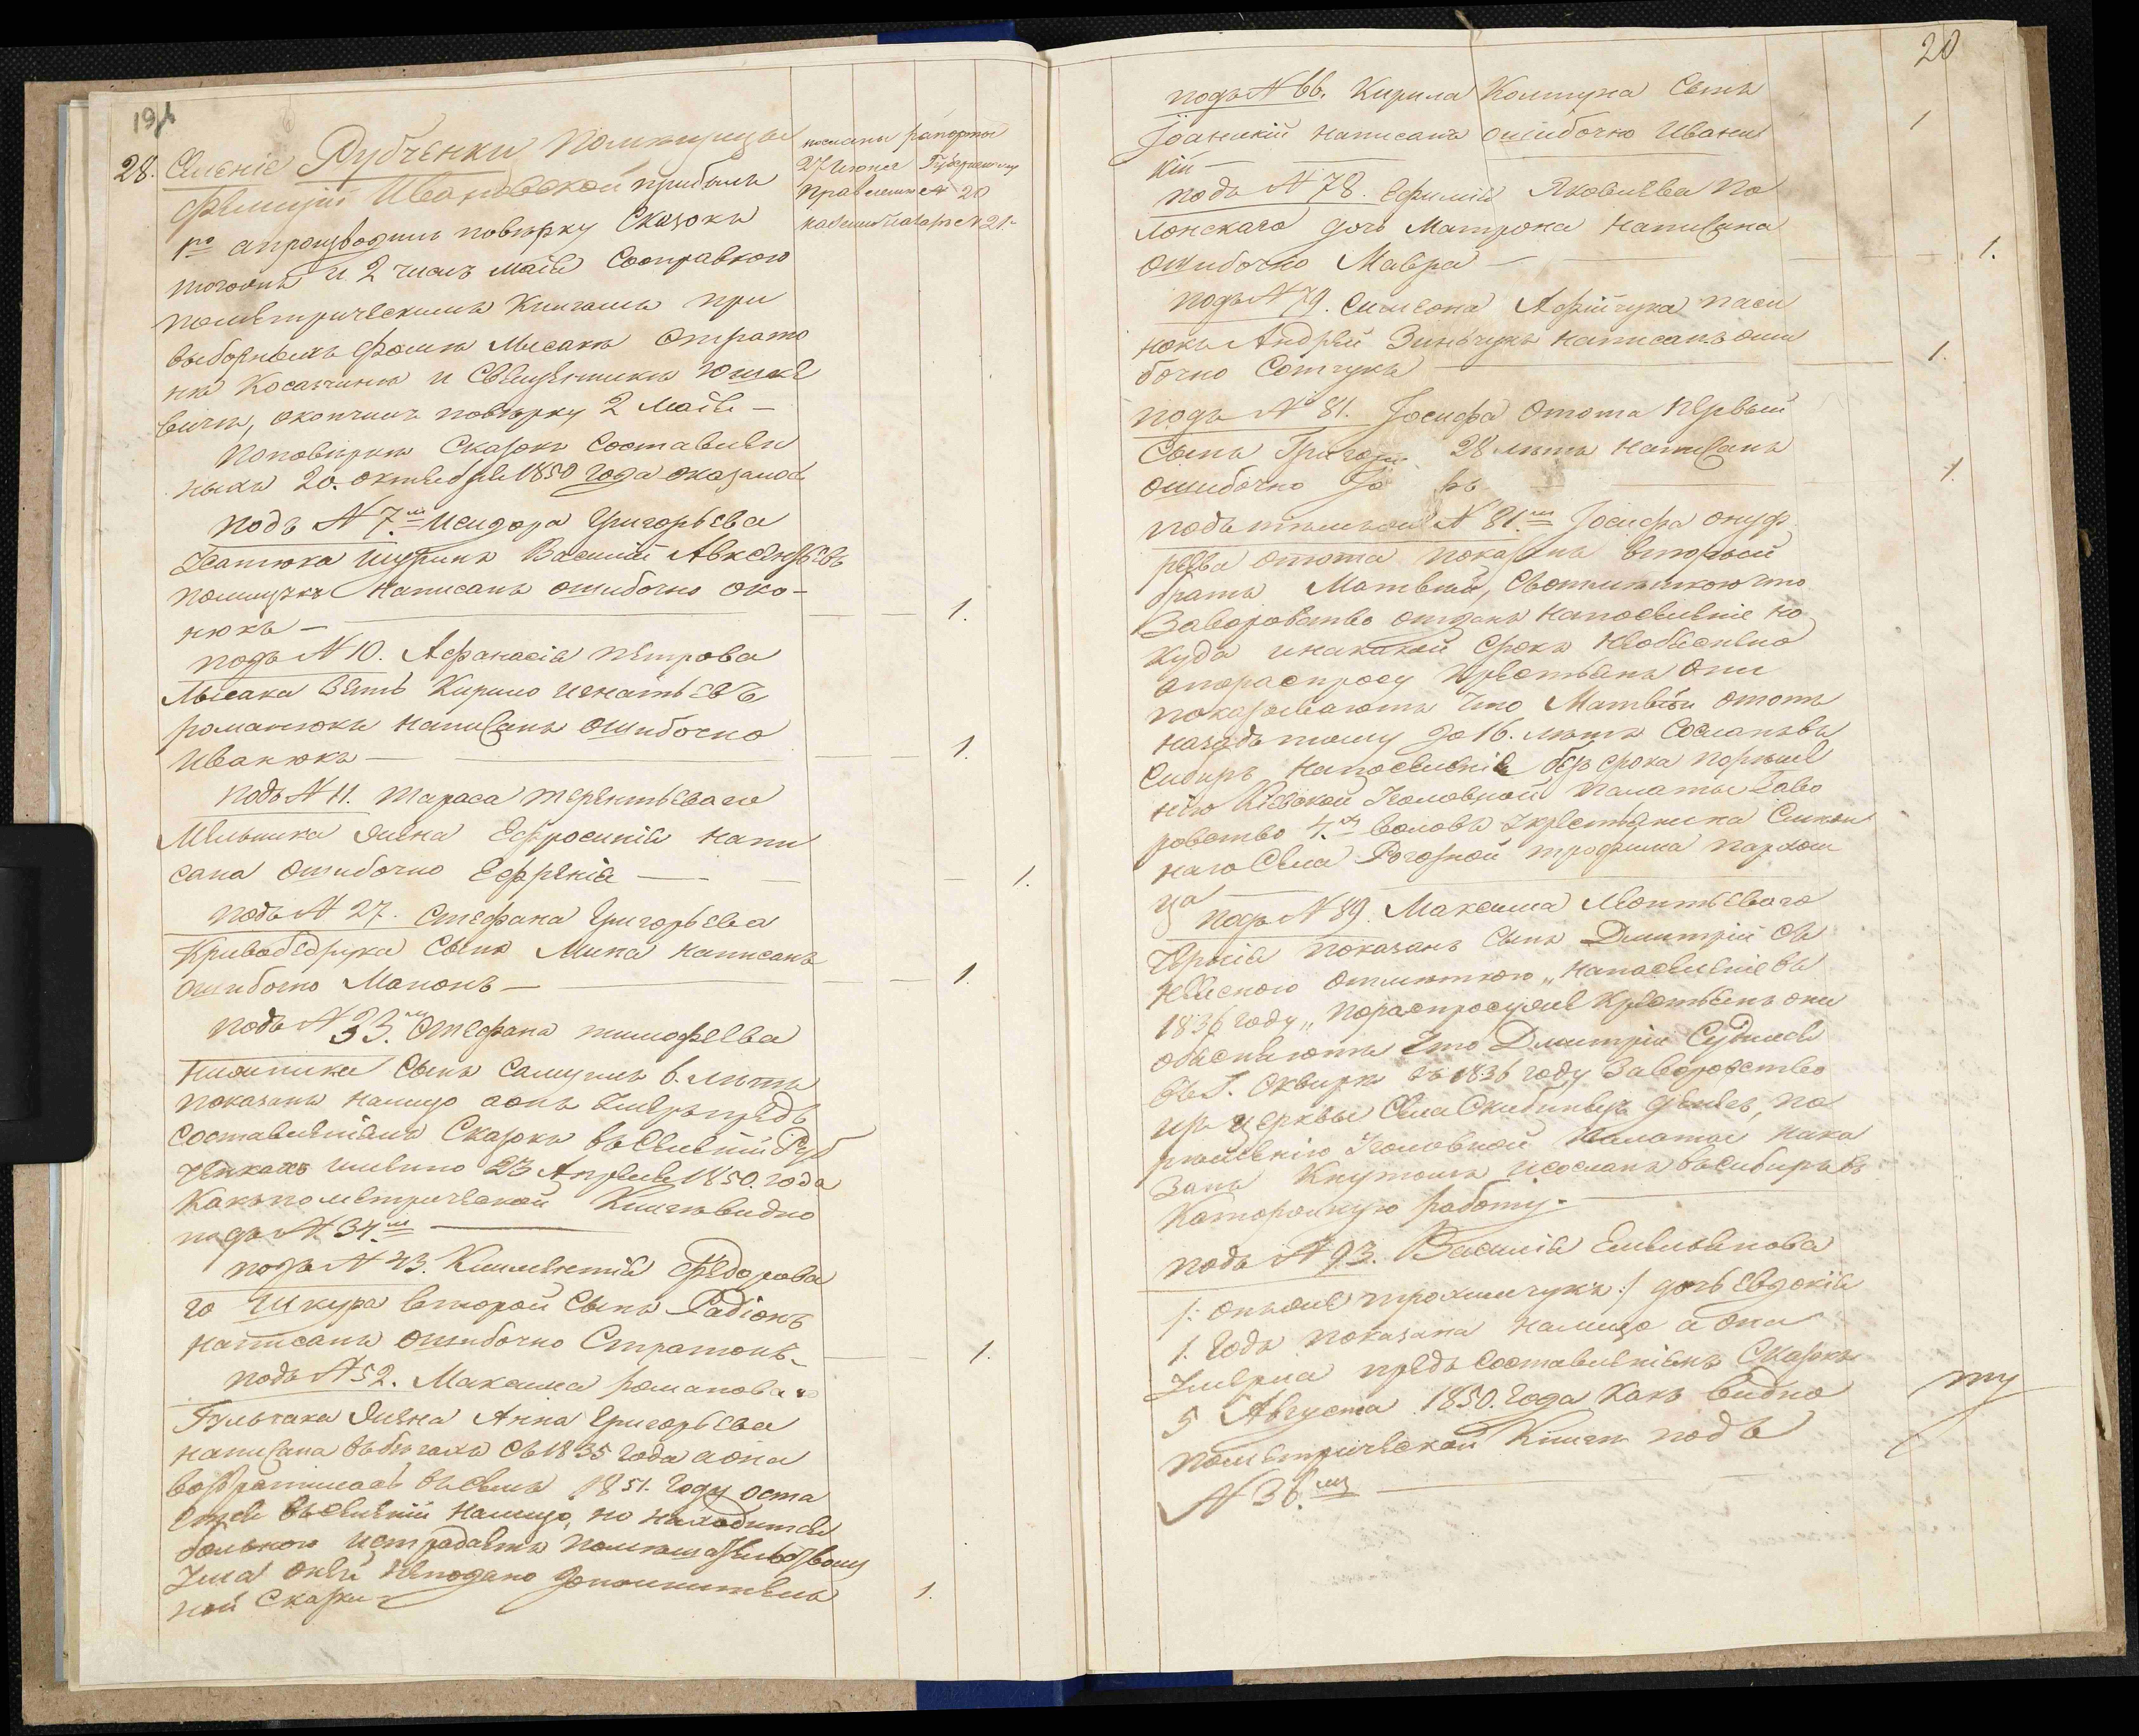 19
28. Имѣніе Рубченки Помѣщицы
Фелиціи Ивановской прибылъ
1го а производилъ повѣрку Сказокъ
тогожъ и 2 числъ Маія Соотправкою
пометрическимъ Книгамъ при
выборныхъ Фомы Мисака
и Священника Юшке
вича, окончилъ повѣрку 2 Маія —
поданы рапорты
27 Июня Губернскому
правленію № 20
казенной палатѣ № 21.
Поповѣрки Сказокъ Составлен
ныхъ 20. октября 1850 года оказалось
подъ № 7.мъ Исидора Григорьева
шуринъ Василій Авксентьевъ
Полищукъ Написанъ ошибочно око-
нюкъ — 1.
подъ № 10. Афанасія Петрова
Лысака зять Кирило Игнатьевъ
романюкъ написанъ ошибочно
Иванюкъ — 1.
подъ № 11. Тараса Терентьеваго
Мельника жена Ефросинія напи
сана ошибочно Ефренія — 1.
подъ № 27. Стефана Григорьева
Кривобедрика Сынъ Мина написанъ
ошибочно Манонъ — 1.
подъ № 33.мъ Стефана тимофеева
Сынъ Самуилъ 6. лѣтъ
показанъ налицо аонъ умеръ предъ
Составленіемъ Сказокъ въ Селеніи Руб
ченкахъ имянно 23 Апреля 1850. года
Какъ по метрической Книгѣ видно
подъ № 34.мъ —
подъ № 43. Климентія Федорова
го Шкура второй Сынъ Радіонъ
написанъ ошибочно Стратонъ — 1.
подъ № 52. Максима романоваго
Гульчака жена Анна Григорьева
написана въ бѣгахъ съ 1835 года аона
возвратилась въ Семъ 1851. году оста
ется въ Селеніи налицо, но находится
больною и страдаетъ помѣшательствомъ
ума о ней неподано дополнитель
ной Сказки 1.
20
подъ № 66. Кирила Колтуна Сынъ
Іоаникій написанъ ошибочно Ивани 1
кій —
подъ № 78. Ефимія Яковлева По
лонскаго дочь Матрона написана
ошибочно Мавра — 1.
подъ № 79. Симеона Афійчука пасы
нокъ Андрей Зиньчукъ написанъ оши
бочно Сотчукъ — 1.
подъ № 81. Іосифа Отота первый
Сынъ Григорій 28 лѣтъ написанъ
ошибочно 1.
подъ тѣмже № 81.мъ Іосифа онуф
реева отота показанъ второй
братъ Матвей, Съотмѣткою что
Заворовство отданъ напоселеніе но
куда инакакой срокъ необяснено
апораспросу крестьянъ они
показываютъ что Матвѣй ототъ
назадъ тому до 16. лѣтъ Сосланъ въ
Сибирь напоселеніе безъ срока порѣше
нію Кіевской Уголовной Палаты Заво
ровство 4.хъ воловъ Укрестьянина
наго Села Рогозной трофима пархом
ца
подъ № 89. Максима Леонтьеваго
показанъ Сынъ Дмитрій Съ
неясною отмѣткою „напоселеніе въ
1836 году„ пораспросуже крестьянъ они
обьясняютъ что Дмитрій Судился
въ Г. Сквирѣ въ 1836 году Заворовство
изъ церквы Села Скибинецъ денегъ, по
рѣшенію Уголовной Палаты нака
занъ Кнутомъ исосланъ въ Сибирь въ
Каторжную работу. —
подъ № 93. Василія Емельянова
/: онъже трохимчукъ :/ дочь Евдокія
1. годъ показана налицо а она
умерла предъ Составленіемъ Сказокъ
5 Августа 1850. года Какъ видно
пометрической Книги подъ
№ 36.мъ —